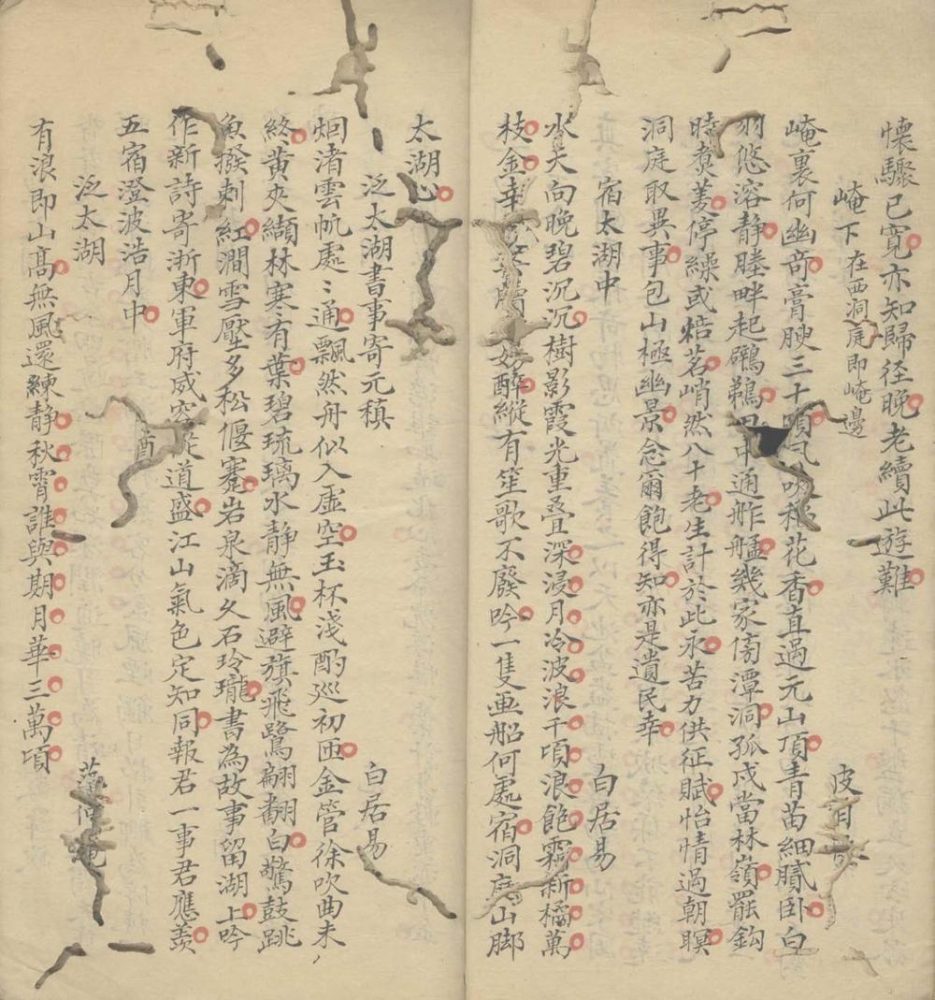 懷驟已寬亦知歸径晚老續此遊難
崦下 在西洞庭即崦邊 皮日
崦裏何幽奇膏腴三十頃風吹稻花香直過元山頂青苗細膩卧白
羽悠溶靜塍畔起鸊鵜田中通舴艋幾家傍潭洞孤戍當林嶺罷鈎
時煑菱停繰或焙茗峭然八十老生計於此永苦力供征賦怡情過朝暝
洞庭取異事包山極幽景念爾飽得知亦是遺民幸
宿太湖中 白居易
水天向晚碧沉沉樹影霞光重叠深浸月冷波浪千頃浪飽霜新橘萬
枝金幸案牘妨醉縱有笙歌不廢吟一隻畫船何處宿洞庭山脚
太湖心
泛太湖書事寄元稹 白居易
烟渚雲帆處〻通飄然舟似入虛空玉杯淺酌巡初匝金管徐吹曲未
終黄夾纈林寒有葉碧琉璃水靜無風避旗飛鷺翩翻白驚鼓跳
魚撥剌紅澗雪壓多松偃蹇岩泉滴久石玲瓏書為故事留湖上吟
作新詩寄浙東軍府威容從道盛江山氣色定知同報君一事君應羨
五宿澄波浩月中
泛太湖
有浪即山髙無風還練靜秋霄誰與期月華三萬頃